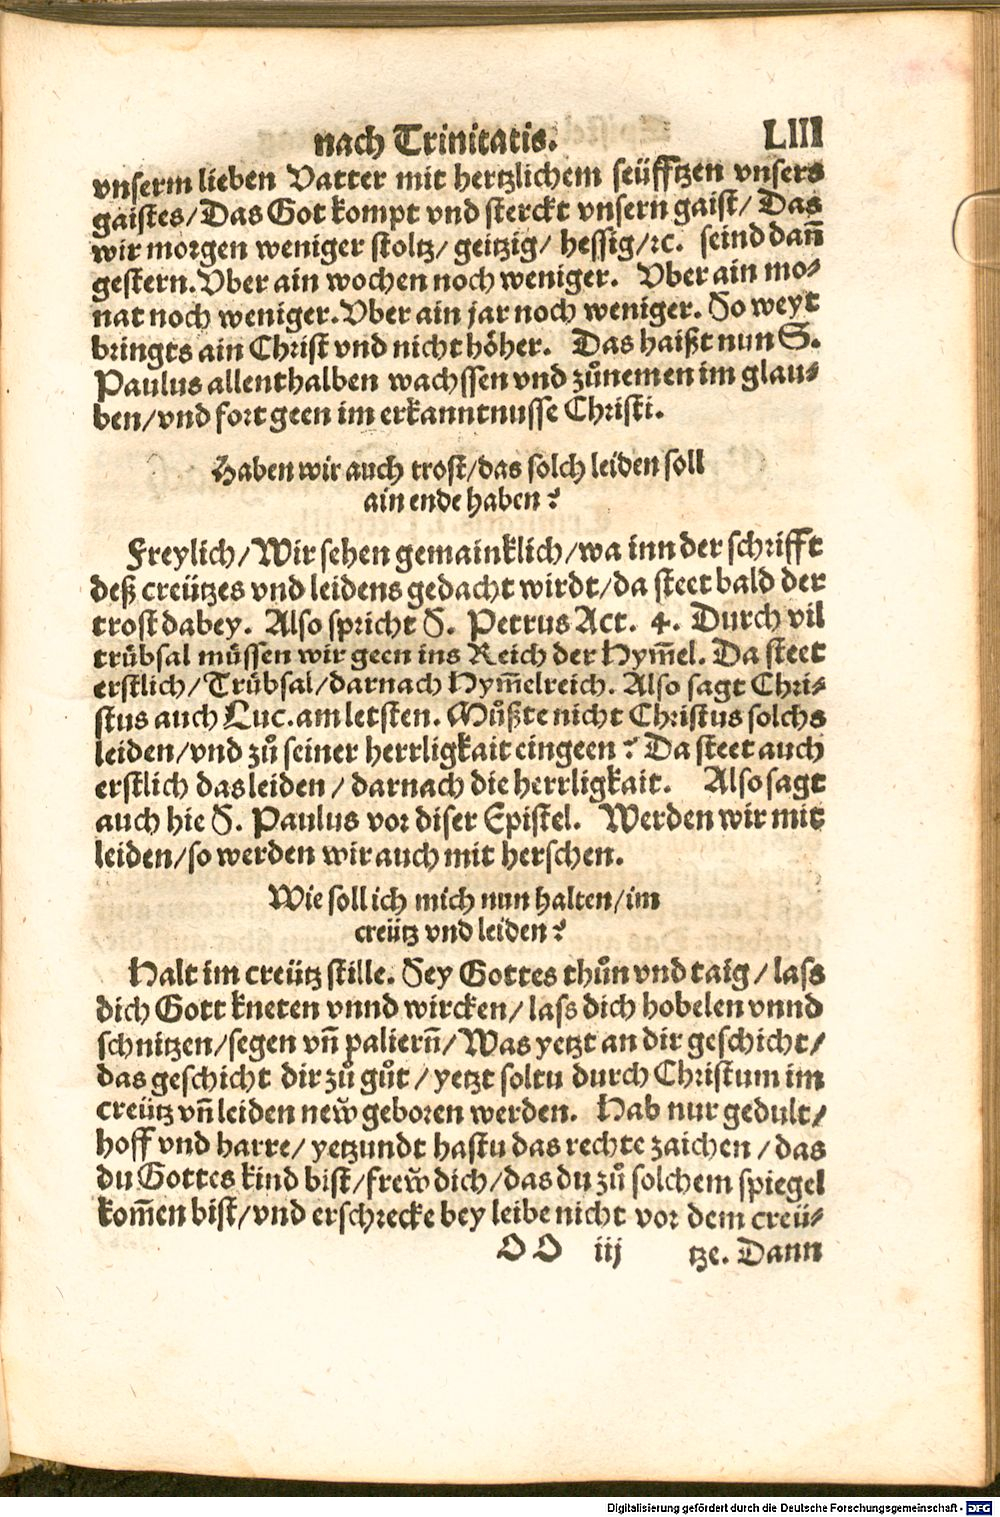 nach Trinitatis. LIII
vnserm lieben Vatter mit hertzlichem seüfftzen vnsers
gaistes/ Das Got kompt vnd sterckt vnsern gaist/ Das
wir morgen weniger stoltz/ geitzig/ hessig/ ꝛc. seind dañ
gestern. Vber ain wochen noch weniger. Vber ain mo⸗
nat noch weniger. Vber ain jar noch weniger. So weyt
bringts ain Christ vnd nicht höher. Das haißt nun S.
Paulus allenthalben wachssen vnd zůnemen im glau⸗
ben/ vnd fort geen im erkanntnusse Christi.
Haben wir auch trost/ das solch leiden soll
ain ende haben?
Freylich/ Wir sehen gemainklich/ wa inn der schrifft
deß creützes vnd leidens gedacht wirdt/ da steet bald der
trost dabey. Also spricht S. Petrus Act. 4. Durch vil
trübsal müssen wir geen ins Reich der Hym̃el. Da steet
erstlich/ Trübsal/ darnach Hym̃elreich. Also sagt Chri⸗
stus auch Luc. am letsten. Můßte nicht Christus solchs
leiden/ vnd zů seiner herrligkait eingeen? Da steet auch
erstlich das leiden/ darnach die herrligkait. Also sagt
auch hie S. Paulus vor diser Epistel. Werden wir mit
leiden/ so werden wir auch mit herschen.
Wie soll ich mich nun halten/ im
creütz vnd leiden?
Halt im creütz stille. Sey Gottes thůn vnd taig/ lass
dich Gott kneten vnnd wircken/ lass dich hobelen vnnd
schnitzen/ segen vñ palierñ/ Was yetzt an dir geschicht/
das geschicht dir zů gůt/ yetzt soltu durch Christum im
creütz vñ leiden new̆ geboren werden. Hab nur gedult/
hoff vnd harre/ yetzundt hastu das rechte zaichen/ das
du Gottes kind bist/ frew̆ dich/ das du zů solchem spiegel
kom̃en bist/ vnd erschrecke bey leibe nicht vor dem creü⸗
OO iij tze. Dann
Digitalisierung gefördert durch die Deutsche Forschungsgemeinschaft - DFG